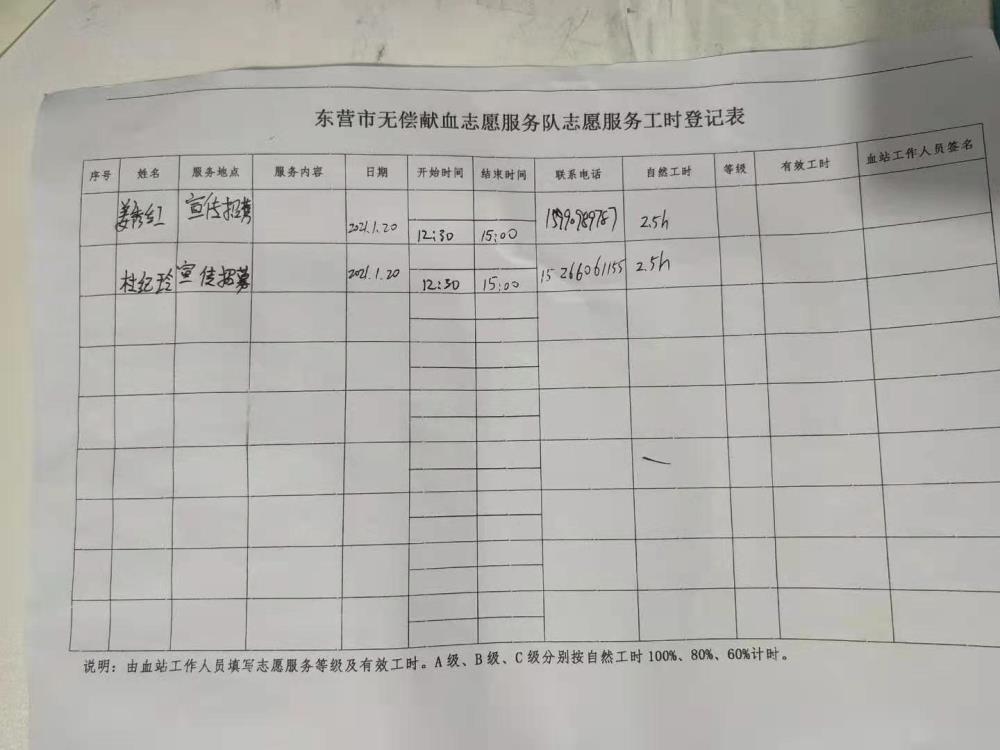 东营市无偿献血志愿服务队志愿服务工时登记表
序号 姓名 服务地点 服务内容 日期 开始时间 结束时间 联系电话 自然工时 等级 有效工时 血站工作人员签名
姜秀红 宣传招募 2021.1.20 12:30 15:00 2.5h
杜纪玲 宣传招募 2021.1.20 12:30 15:00 15266061155 2.5h
说明：由血站工作人员填写志愿服务等级及有效工时。A级、B级、C级分别按自然工时100%、80%、60%计时。